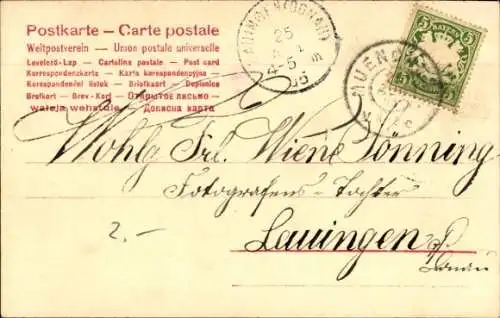 Postkarte – Carte postale
Weltpostverein – Union postale universelle
Levelező-Lap – Cartolina postale – Post card
Korrespondenzkarte – Karta korespondencyjna
Korespondenční lístek – Briefkaart – Dopisnice
Brefkort – Brev-Kort – Открытое письмо –
Дописна карта
LAUINGEN (DONAU)
25
4-5
05
5 BAYERN 5
MUENCHEN
Wohlg Frl. Wiene Dönning
Fotografens-Tochter
2.-
Lauingen
Donau